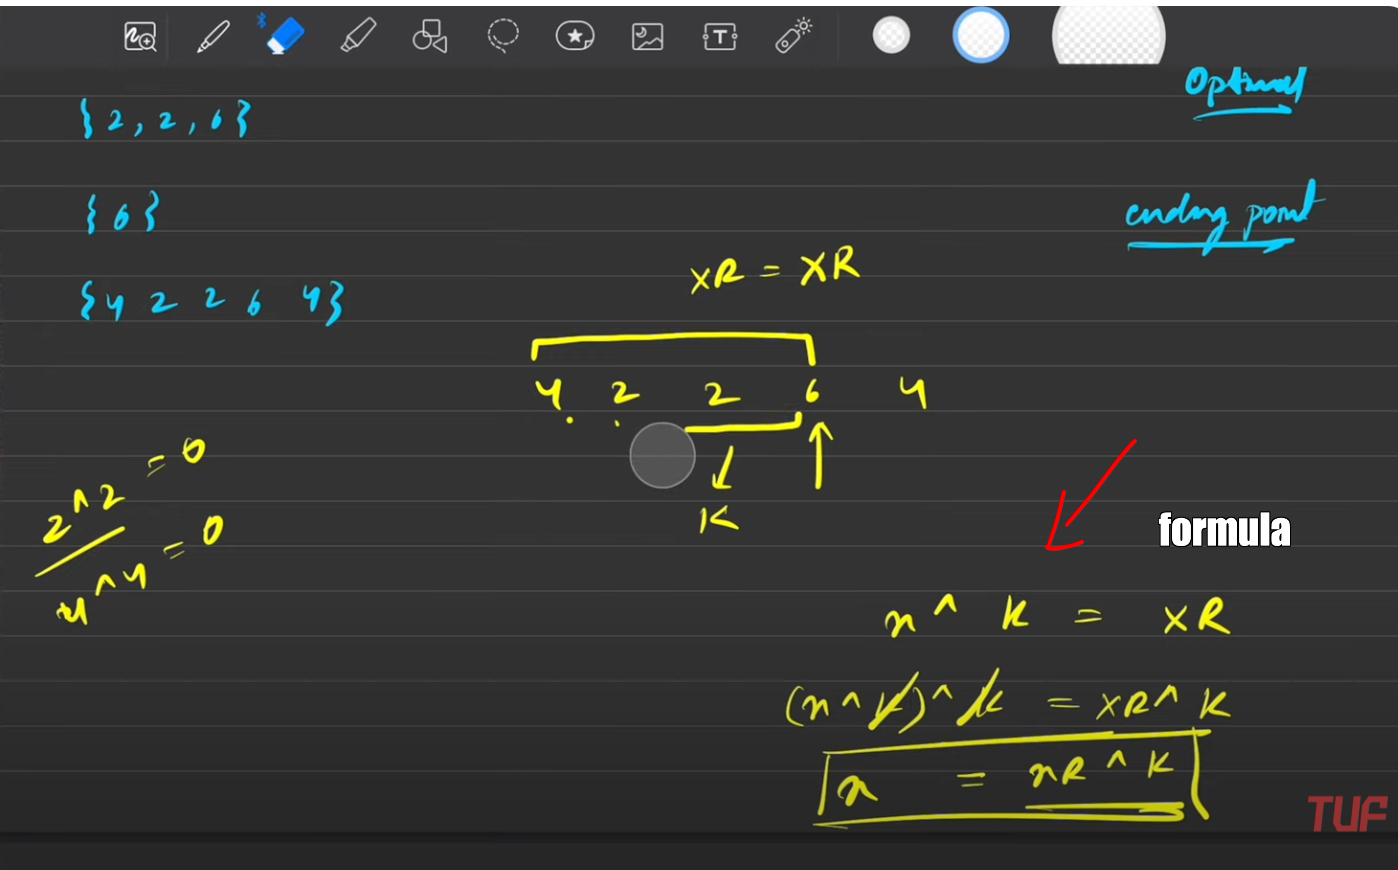 Optimal
{2, 2, 6}
{6}
ending point
xR = XR
{4 2 2 6 4}
4 2 2 6 4
K
2^2 = 0
4^4 = 0
formula
x ^ k = XR
(x ^ k) ^ k = XR ^ K
x = xR ^ K
TUF
T